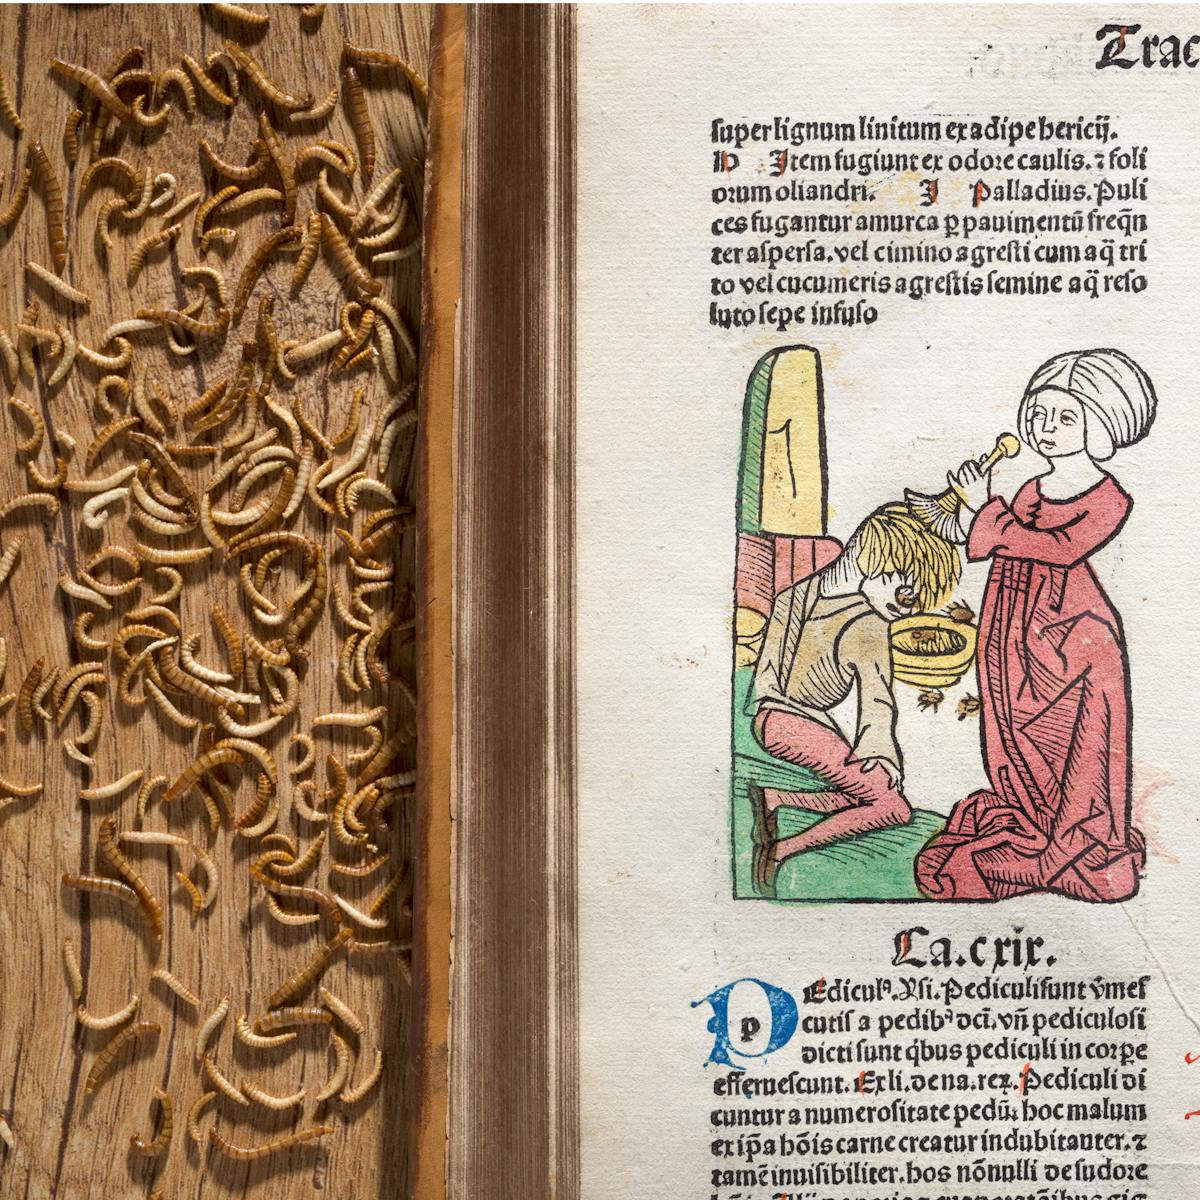 Trac
superlignum linitum ex adipe hericij.
D Item fugiunt ex odore caulis. ⁊ foli
orum oliandri. J Palladius. Puli
ces fugantur amurca ꝑ pauimentū freq̄n
ter aspersa. vel cimino agresti cum aq̄ tri
to vel cucumeris agrestis semine aq̄ reso
luto sepe infuso
Ca. cxix.
PEdiculꝰ. Ysi. Pediculi sunt v̄mes
cutis a pedibꝰ dcī. vn̄ pediculosi
dicti sunt q̇bus pediculi in corꝑe
efferuescunt. Ex li. de na. reꝝ. Pediculi di
cuntur a numerositate pedū. hoc malum
ex ip̄a hōis carne creatur indubitanter. ⁊
tamē inuisibiliter. hos nōnulli de sudore